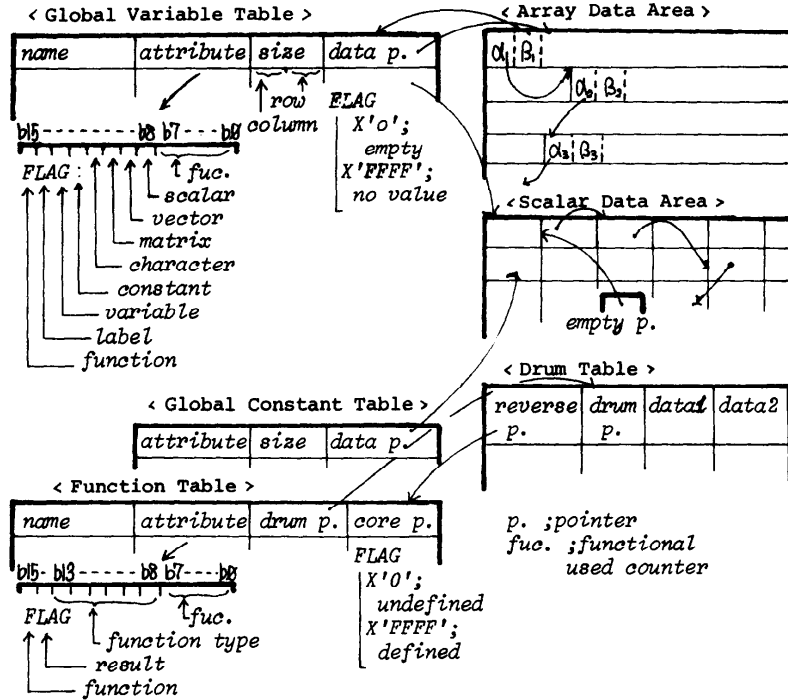 < Global Variable Table >
name attribute size data p.
row
column
FLAG
X'0';
empty
X'FFFF';
no value
b15 b8 b7 b0
FLAG : fuc.
scalar
vector
matrix
character
constant
variable
label
function
< Array Data Area >
α1 β1
α2 β2
α3 β3
<Scalar Data Area >
empty p.
<Drum Table >
reverse p. drum p. data1 data2
< Global Constant Table >
attribute size data p.
< Function Table >
name attribute drum p. core p.
b15 b13 b8 b7 b0
FLAG fuc.
function type
result
function
FLAG
X'0';
undefined
X'FFFF';
defined
p. ;pointer
fuc. ;functional
used counter